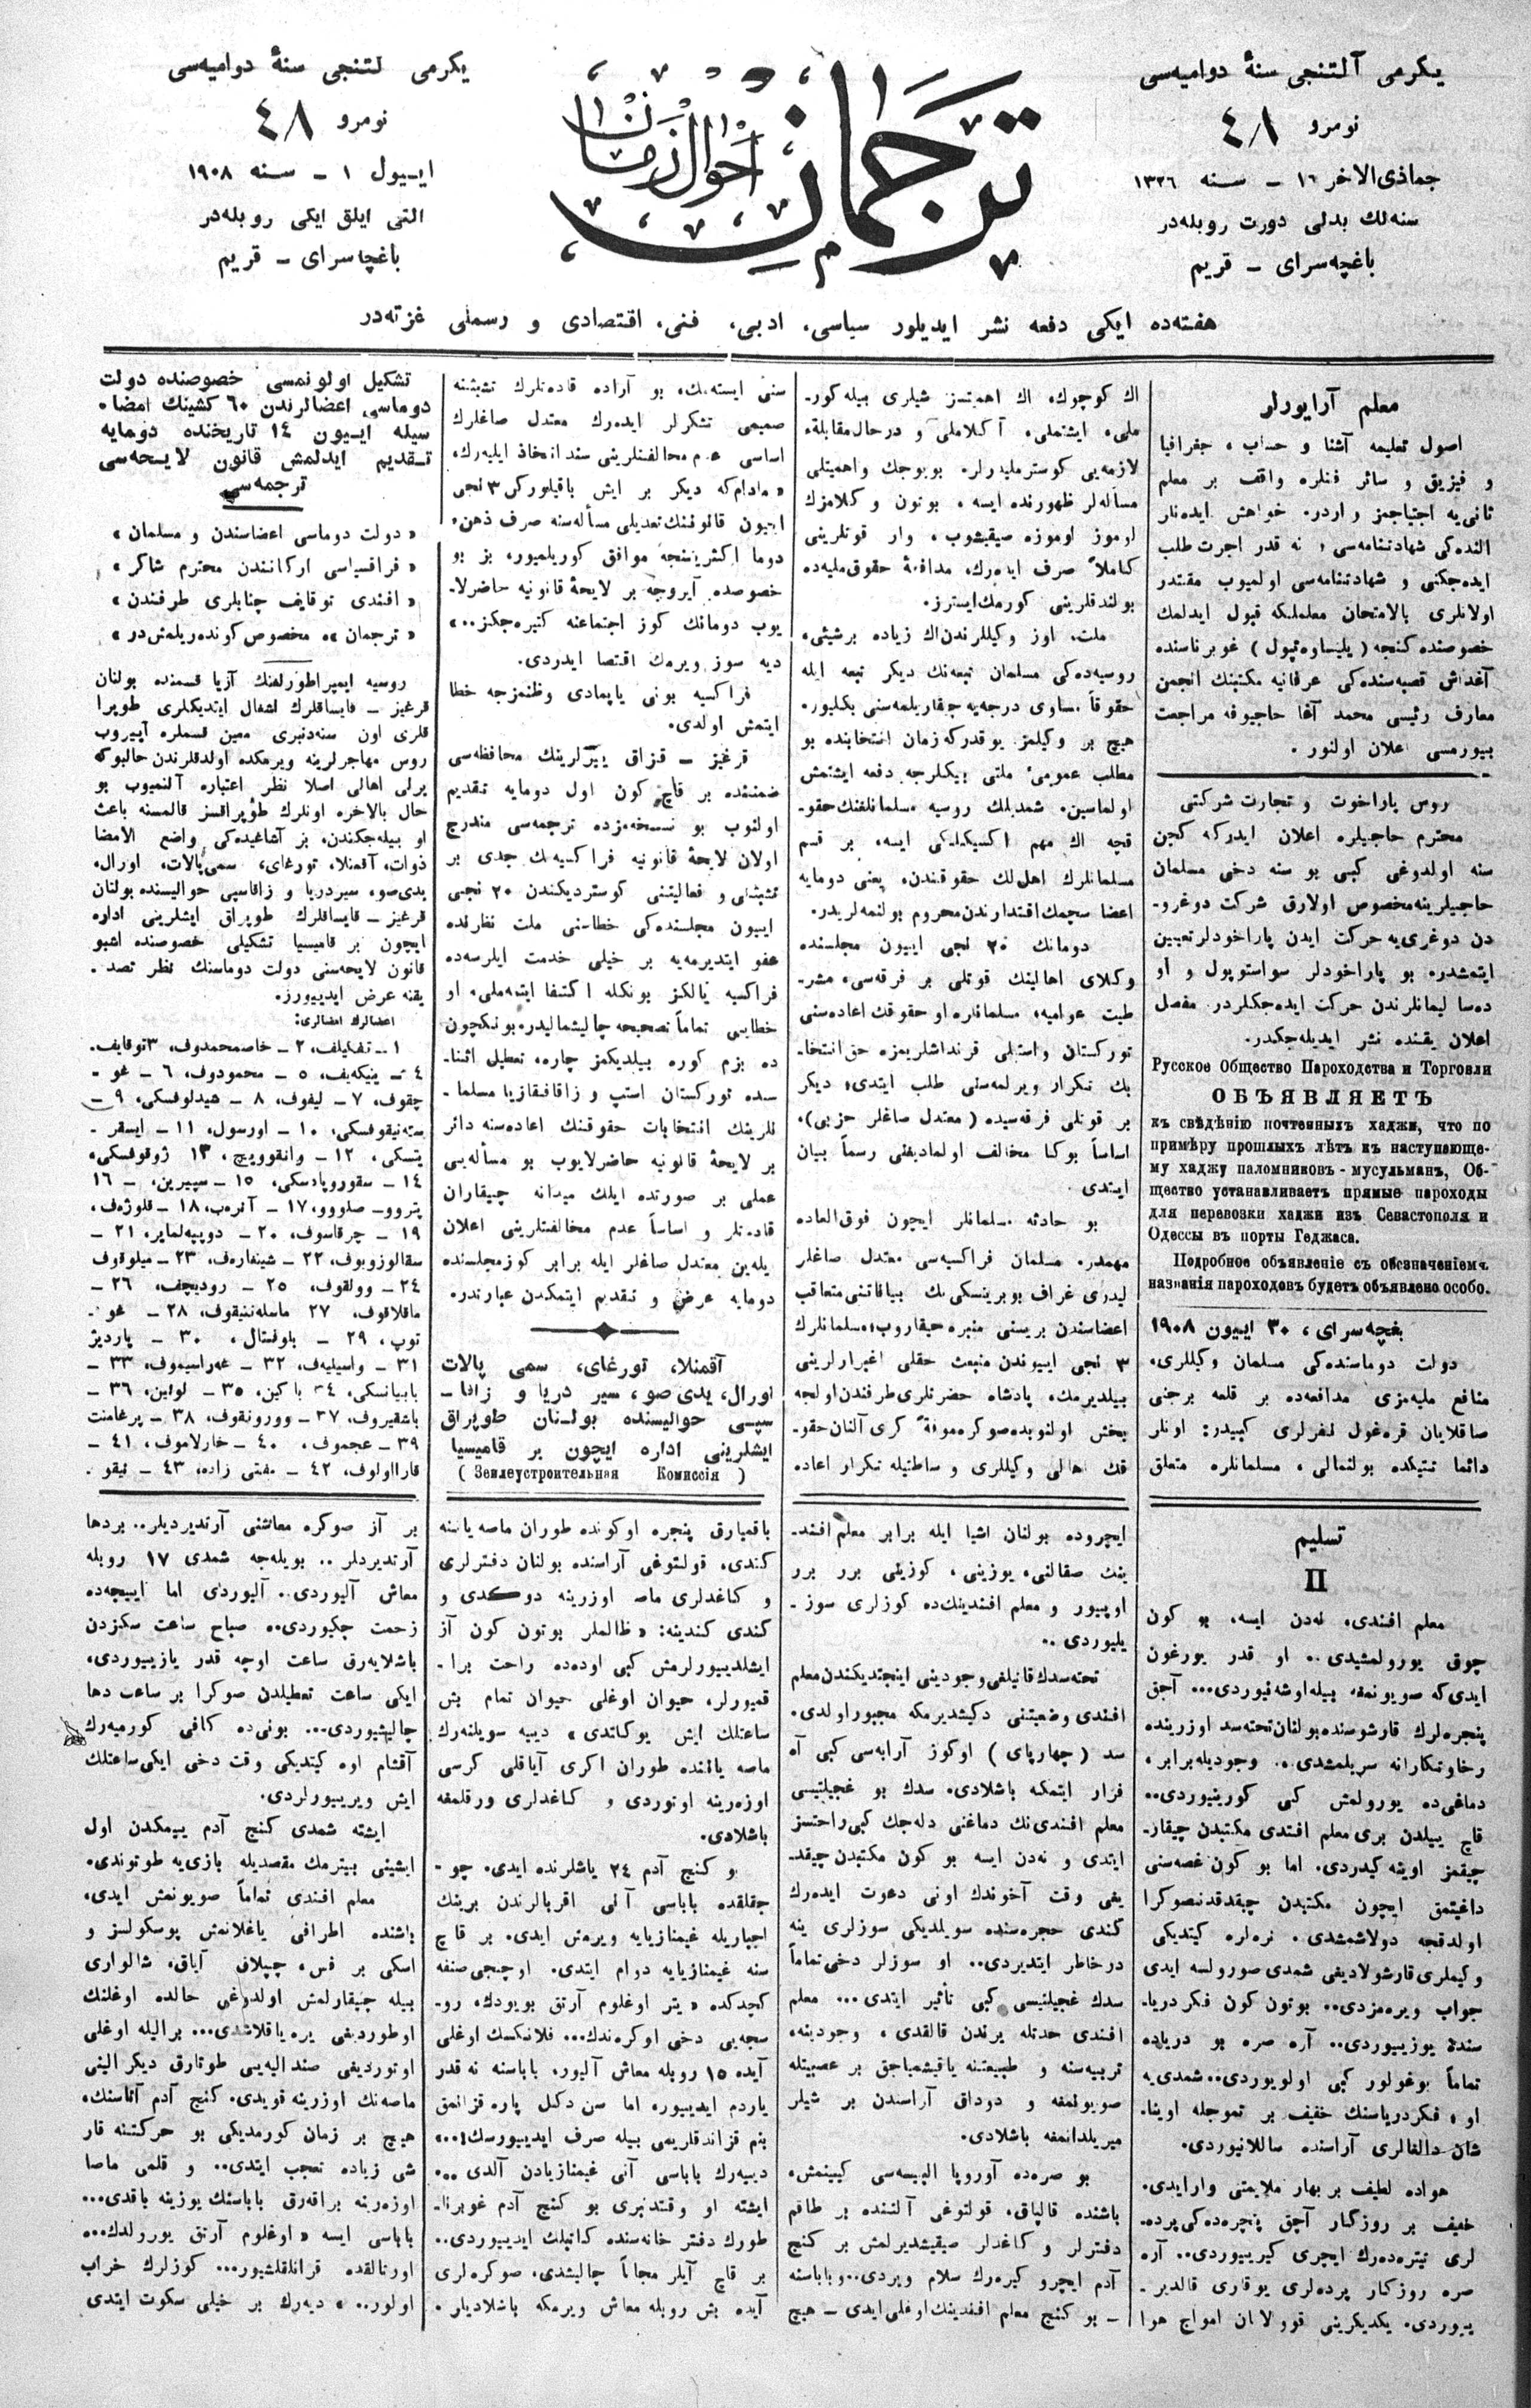 يكرمى آلتنجى سنۀ دواميه‌سى
نومرو ٤٨
جماذى‌الاخر ١٦ – سنه ١٣٢٦
سنه‌لك بدلى دورت روبله‌در
باغچه‌سراى – قريم
ترجمان
احوال زمان
يكرمى لتنجى سنۀ دواميه‌سى
نومرو ٤٨
اييول ١ – سنه ١٩٠٨
التى ايلق ايكى روبله‌در
باغچا سراى – قريم
هفته‌ده ايكى دفعه نشر ايديلور سياسى، ادبى، فنى، اقتصادى و رسملى غزته‌در
معلم آرايورلر
اصول تعليمه آشنا و حساب ، جغرافيا
و فيزيق و سائر فنلره واقف بر معلم
ثانى‌يه احتياجمز واردر. خواهش ايده‌نلر
النده‌كى شهادتنامه‌سى ، نه قدر اجرت طلب
ايده‌جكنى و شهادتنامه‌سى اولميوب مقتدر
اولانلرى بالامتحان معلملكه قبول ايدلمك
خصوصنده كنجه (يليساوه‌تپول) غوبرناسنده
آغداش قصبه‌سنده‌كى عرفانيه مكتبنك انجمن
معارف رئيسى محمد آغا حاجيوفه مراجعت
بيورمسى اعلان اولنور .
روس پاراخوت و تجارت شركتى
محترم حاجيلره اعلان ايدركه كچن
سنه اولدوغى كبى بو سنه دخى مسلمان
حاجيلرينه مخصوص اولارق شركت دوغرو-
دن دوغرى‌يه حركت ايدن پاراخودلر تعيين
ايتمشدر. بو پاراخودلر سواستوپول و او
ده‌سا ليمانلرندن حركت ايده‌جكلردر. مفصل
اعلان يقنده نشر ايديله‌جكدر.
Русское Общество Пароходства и Торговли
ОБЪЯВЛЯЕТЪ
къ свѣдѣнію почтенныхъ хаджи, что по
примѣру прошлыхъ лѣтъ къ наступающе-
му хаджу паломниковъ - мусульманъ, Об-
щество устанавливаетъ прямые пароходы
для перевозки хаджи изъ Севастополя и
Одессы въ порты Геджаса.
Подробное объявленіе съ обозначеніемъ
названія пароходовъ будетъ объявлено особо.
بغچه‌سراى ، ٣٠ اييون ١٩٠٨
دولت دوماسنده‌كى مسلمان وكيللرى،
منافع مليه‌مزى مدافعه‌ده بر قلعه برجنى
صاقلايان قره‌غول نفرلرى كبيدر: اونلر
دائما تتيكده بولنمالى ، مسلمانلره متعلق
اك كوچوك، اك اهميتسز شيلرى بيله كور-
ملى، ايشتملى، آكلاملى و درحال مقابلۀ،
لازمه‌يى كوسترمليدرلر. بويوجك واهميتلى
مسأله‌لر ظهورنده ايسه ، بوتون وكلامزك
اوموز اوموزه صيقيشوب، وار قوتلرينى
كاملاً صرف ايدەرك، مدافعۀ حقوق مليه‌ده
بولندقلرينى كورمك ايسترز.
ملت، اوز وكيللرندن اك زياده برشيئى،
روسيه‌ده‌كى مسلمان تبعه‌نك ديكر تبعه ايله
حقوقاً مساوى درجه‌يه چيقاريلمه‌سنى بكليور.
هيچ بر وكيلمز يوقدركه زمان انتخابنده بو
مطلب عمومئ ملتى بيكلرجه دفعه ايشتمش
اولماسين. شمديلك روسيه مسلمانلغنك حقو-
قجه اك مهم اكسيكلكى ايسه، بر قسم
مسلمانلرك اهل‌لك حقوقندن، يعنى دومايه
اعضا سچمك اقتدارندن محروم بولنمه‌لريدر.
دومانك ٢٥ نجى اييون مجلسنده
وكلاى اهالينك قوتلى بر فرقه‌سى، مشر-
طيت عواميه، مسلمانلره او حقوقك اعاده‌سنى
توركستان واستپلى قرنداشلريمزه حق انتخا-
بك تكرار ويرلمه‌سنى طلب ايتدى؛ ديكر
بر قوتلى فرقه‌سيده (معتدل صاغلر حزبى)،
اساساً بوكا مخالف اولماديغنى رسماً بيان
ايتدى.
بو حادثه مسلمانلر ايچون فوق‌العاده
مهمدر. مسلمان فراكسيه‌سى معتدل صاغلر
ليدرى غراف بوبرينسكى‌نك بياناتنى متعاقب
اعضاسندن بريسنى منبره چيقاروب، مسلمانلرك
٣ نجى اييوندن منبعث حقلى اغبرارلرينى
بيلديرمك، پادشاه حضرتلرى طرفندن اولجه
بخش اولنوبده صوكره موقةً كرى آلنان حقو-
قك اهالى وكيللرى و ساطتيله تكرار اعاده
سنى ايسته‌مك، بو آراده قاده‌تلرك تشبثنه
صميمى تشكرلر ايدەرك معتدل صاغلرك
اساسى عدم مخالفتلرينى سند اتخاذ ايليه‌رك،
« مادام‌كه ديكر بر ايش باقيليوركن ٣ نجى
اييون قانوننك تعديلى مسأله‌سنه صرف ذهن،
دوما اكثريتنجه موافق كورلميور، بز بو
خصوصده آيروجه بر لايحۀ قانونيه حاضرلا-
يوب دومانك كوز اجتماعنه كتيره‌جكز..»
ديه سوز ويرمك اقتضا ايدردى.
فراكسيه بونى ياپمادى وظنمزجه خطا
ايتمش اولدى.
قرغيز – قزاق ييرلرينك محافظه‌سى
ضمننده بر قاچ كون اول دومايه تقديم
اولنوب بو نسخه‌مزده ترجمه‌سى مندرج
اولان لايحۀ قانونيه فراكسيه‌نك جدى بر
تشبثنى و فعاليتنى كوسترديكندن ٢٥ نجى
اييون مجلسنده‌كى خطاسنى ملت نظرنده
عفو ايتديرمه‌يه بر خيلى خدمت ايلرسه‌ده
فراكسيه يالكز بونكله اكتفا ايتمه‌ملى، او
خطايى تماماً تصحيحه چاليشماليدر. بونكچون
ده بزم كوره بيلديكمز چاره، تعطيل اثنا-
سنده توركستان استپ و زاقافقازيا مسلما-
نلرينك انتخابات حقوقنك اعاده‌سنه دائر
بر لايحۀ قانونيه حاضرلايوب بو مسأله‌يى
عملى بر صورتده ايلك ميدانه چيقاران
قاده‌تلر و اساساً عدم مخالفتلرينى اعلان
يله‌ين معتدل صاغلر ايله برابر كوز مجلسنده
دومايه عرض و تقديم ايتمكدن عبارتدر.
آقمنلا، تورغاى، سمى پالات
اورال، يدى صو، سير دريا و زاقا-
سپسى حواليسنده بولنان طوپراق
ايشلرينى اداره ايچون بر قاميسيا
(Землеустроительная Комиссія)
تشكيل اولونمسى خصوصنده دولت
دوماسى اعضالرندن ٦٠ كشينك امضا-
سيله اييون ١٤ تاريخنده دومايه
تقديم ايدلمش قانون لايحه‌سى
ترجمه‌سى
« دولت دوماسى اعضاسندن و مسلمان »
« فراقسياسى اركانندن محترم شاكر »
« افندى توقايف جنابلرى طرفندن »
« ترجمان »ه مخصوص كوندەريلمش‌در »
روسيه ايمپراطورلغنك آزيا قسمنده بولنان
قرغيز – قايساقلرك اشغال ايتديكلرى طوپرا
قلرى اون سنه‌دنبرى معين قسملره آييروب
روس مهاجرلرينه ويرمكده اولدقلرندن حالبوكه
يرلى اهالى اصلا نظر اعتباره آلنميوب بو
حال بالاخره اونلرك طوپراقسز قالمسنه باعث
او بيله‌جكندن، بز آشاغيده‌كى واضع الامضا
ذوات، آقمنلا، تورغاى، سمى‌پالات، اورال،
يدى‌صو، سيردريا و زاقاسپى حواليسنده بولنان
قرغيز – قايساقلرك طوپراق ايشلرينى اداره
ايچون بر قاميسيا تشكيلى خصوصنده اشبو
قانون لايحه‌سنى دولت دوماسنك نظر تصد-
يقنه عرض ايدييورز.
اعضالرك امضالرى:
١ – تفكيلف، ٢ – خاصمحمدوف، ٣ توقايف.
٤ – ينيكه‌يف، ٥ – محمودوف، ٦ – غو-
چقوف، ٧ – ليفوف، ٨ – شيدلوفسكى، ٩ –
سته‌نيقوفسكى، ١٠ – اورسول، ١١ – ايسقر-
يتسكى، ١٢ – وانقوويچ، ١٣ ژوقوفسكى،
١٤ – سقوروپادسكى، ١٥ – سپيرين، – ١٦
پتروو – صلووو، ١٧ – آنره‌ب، ١٨ – قلوژه‌ف،
١٩ – چرقاسوف، ٢٠ – دوپپه‌لماير، ٢١ –
سقالوزوبوف، ٢٢ – شينغاره‌ف، ٢٣ – ميلوقوف
٢٤ – وولقوف، ٢٥ – روديچف، ٢٦ –
ماقلاقوف، ٢٧ ماسله‌ننيقوف، ٢٨ – غو-
توپ، ٢٩ – باوفستال، ٣٠ – پارديز
٣١ – واسيليه‌ف، ٣٢ – غه‌راسيموف، ٣٣ –
بابيانسكى، ٣٤ باكين، ٣٥ – لوتين، ٣٦ –
باشقيروف، ٣٧ – وورونقوف، ٣٨ – پرغامنت
٣٩ – عجموف، ٤٠ – خارلاموف، ٤١ –
قارااولوف، ٤٢ – مفتى زاده، ٤٣ – نيقو-
تسليم
II
معلم افندى، نه‌دن ايسه، بو كون
چوق يورولمشيدى.. او قدر يورغون
ايدى‌كه صويونمغه بيله اوشه‌نيوردى... آچق
پنجره‌لرك قارشوسنده بولنان تخته‌سد اوزرينده
رخاوتكارانه سريلمشدى.. وجوديله برابر،
دماغى‌ده يورولمش كبى كورينيوردى..
قاچ ييلدن برى معلم افندى مكتبدن چيقار-
چيقمز اوينه كيدردى. اما بو كون غصه‌سنى
داغيتمق ايچون مكتبدن چيقدقدنصوكرا
اولدقجه دولاشمشدى. نره‌لره كيتديكى
وكيملرى قارشولاديغى شمدى صورولسه ايدى
جواب ويره‌مزدى.. بوتون كون فكر دريا-
سنده يوزييوردى.. آره صره بو درياده
تماماً بوغولور كبى اولويوردى.. شمدى‌يه
او، فكر درياسنك خفيف بر تموجله اوينا-
شان دالغالرى آراسنده ساللانيوردى.
هواده لطيف بر بهار ملايمتى وارايدى.
خفيف بر روزكار آچق پنجره‌ده‌كى پرده-
لرى تيتره‌ده‌رك ايچرى كيرييوردى.. آره
صره روزكار پرده‌لرى يوقارى قالدير-
ييوردى. يكديكرينى قوولايان امواج هوا
ايچروده بولنان اشيا ايله برابر معلم افند-
ينك صقالنى، يوزينى، كوزينى برر برر
اوپييور و معلم افندينك‌ده كوزلرى سوز-
يليوردى..
تخته‌سدك قاتيلغى وجودينى اينجتديكندن معلم
افندى وضعيتنى دكيشديرمكه مجبور اولدى.
سد (چهارپاى) اوكوز آرابه‌سى كبى آه
فزار ايتمكه باشلادى. سدك بو غجيلتيسى
معلم افندى‌نك دماغنى دله‌جك كبى راحتسز
ايتدى و نه‌دن ايسه بو كون مكتبدن چيقد-
يغى وقت آخوندك اونى دعوت ايده‌رك
كندى حجره‌سنده سويلديكى سوزلرى ينه
درخاطر ايتديردى.. او سوزلر دخى تماماً
سدك غجيلتيسى كبى تأثير ايتدى... معلم
افندى حدتله يرندن قالقدى، وجودينه،
تربيه‌سنه و طبيعتنه ياقيشماياجق بر عصبيتله
صويونمغه و دوداق آراسندن بر شيلر
ميريلدانمغه باشلادى.
بو صره‌ده آوروپا البيسه‌سى كيينمش،
باشنده قالپاق، قولتوغى آلتنده بر طاقم
دفترلر و كاغدلر صيقيشديرلمش بر كنج
آدم ايچرو كيره‌رك سلام ويردى.. وباباسنه
– بو كنج معلم افندينك اوغلى ايدى – هيچ
باقميارق پنجره اوكونده طوران ماصه ياننه
كندى، قولتوغى آراسنده بولنان دفترلرى
و كاغدلرى ماصه اوزرينه دوكدى و
كندى كندينه: « ظالملر بوتون كون آز
ايشلدييورلرمش كبى اوده‌ده راحت برا-
قميورلر، حيوان اوغلى حيوان تمام بش
ساعتلك ايش يوكلتدى » دييه سويلنه‌رك
ماصه ياننده طوران اكرى آياقلى كرسى
اوزه‌رينه اوتوردى و كاغدلرى ورقلمغه
باشلادى.
بو كنج آدم ٢٤ ياشلرنده ايدى. چو-
جقلقده باباسى آنى اقربالرندن برينك
اجباريله غيمنازيايه ويرمش ايدى. بر قاچ
سنه غيمنازيايه دوام ايتدى. اوچنجى صنفه
كچدكده « يتر اوغلوم آرتق بويودك، رو-
سجه‌يى دخى اوكره‌ندك... فلانكسك اوغلى
آيده ١٥ روبله معاش آليور. باباسنه نه قدر
ياردم ايدييور، اما سن دكل پاره قزانمق
بنم قزاندقلريمى بيله صرف ايدييورسك!..»
دييه‌رك باباسى آنى غيمنازيادن آلدى...
ايشته او وقتدنبرى بو كنج آدم غوبرنا-
طورك دفتر خانه‌سنده كاتبلك ايدييوردى..
بر قاچ آيلر مجاناً چاليشدى. صوكره‌لرى
آيده بش روبله معاش ويرمكه باشلاديلر.
بر آز صوكره معاشنى آرتديرديلر.. بردها
آرتديردلر.. بويله‌جه شمدى ١٧ روبله
معاش آليوردى.. آليوردى اما ايييجه‌ده
زحمت چكيوردى.. صباح ساعت سكزدن
باشلايه‌رق ساعت اوچه قدر يازييوردى،
ايكى ساعت تعطيلدن صوكرا بر ساعت دها
چاليشيوردى... بونى‌ده كافى كورميه‌رك
آقشام اوه كيتديكى وقت دخى ايكى ساعتلك
ايش ويرييورلردى.
ايشته شمدى كنج آدم ييمكدن اول
ايشينى بيترمك مقصديله يازى‌يه طوتوندى.
معلم افندى تماماً صويونمش ايدى،
باشنده اطرافى ياغلانمش پوسكولسز و
اسكى بر فس، چپلاق آياق، شالوارى
بيله چيقارلمش اولدوغى حالده اوغلنك
اوطورديغى يره ياقلاشدى... برالیله اوغلى
اوتورديغى صنداليه‌يى طوتارق ديكر الينى
ماصه‌نك اوزرينه قويدى. كنج آدم آتاسنك،
هيچ بر زمان كورمديكى بو حركتنه قار
شى زياده تعجب ايتدى.. و قلمى ماصا
اوزه‌رينه براقه‌رق باباسنك يوزينه باقدى...
باباسى ايسه « اوغلوم آرتق يورولدك...
اورتالقده قرانلقلشيور... كوزلرك خراب
اولور.. » ديه‌رك بر خيلى سكوت ايتدى